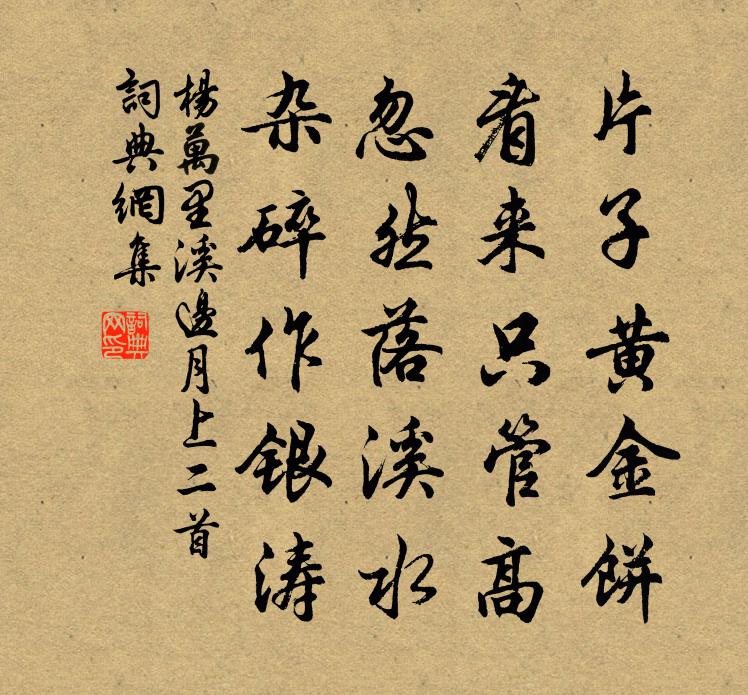 片子黄金餅
看来只管高
忽然落溪水
杂碎作银涛
楊萬里溪邊月上二首
詞典網集
詞典网印